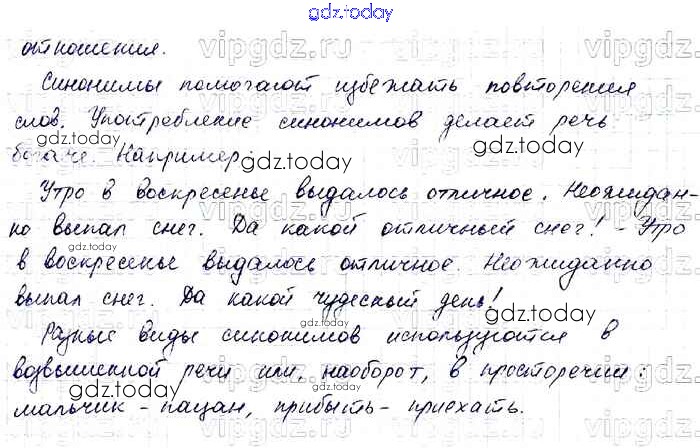 gdz.today
отношения.
Синонимы помогают избежать повторения
слов. Употребление синонимов делает речь
богаче. Например:
Утро в воскресенье выдалось отличное. Неожидан-
но выпал снег. Да какой отличный снег! - Утро
в воскресенье выдалось отличное. Неожиданно
выпал снег. Да какой чудесный день!
Разные виды синонимов используются в
возвышенной речи или, наоборот, в просторечии:
мальчик - пацан, прибыть - приехать.